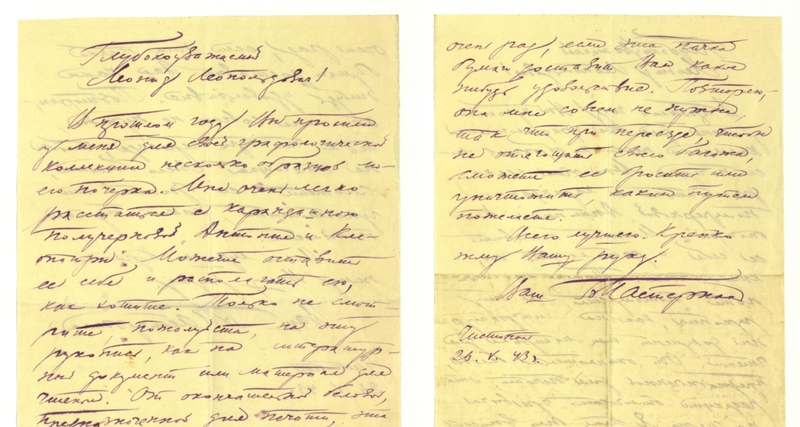 Глубокоуважаемый
Леонид Леопольдович!
В прошлом году Вы просили
у меня для своей графологической
коллекции несколько образцов мо-
его почерка. Мне очень легко
расстаться с карандашною
получерновой "Антония и Клео-
патры". Можете оставить
ее себе и располагать ею,
как хотите. Только не смот-
рите, пожалуйста, на эту
рукопись, как на литератур-
ный документ или материал для
чтения. От окончательной беловой,
предназначенной для печати, она
очень рад, если эта пачка
бумаги доставит Вам какое
нибудь удовольствие. Повторяю,-
она мне совсем не нужна,
так что при переезде, чтобы
не отягощать своего багажа,
сможете ее бросить или
уничтожить, каким путем
пожелаете.
Всего лучшего. Крепко
жму Вашу руку.
Ваш Б Пастернак
Чистополь
43 г.